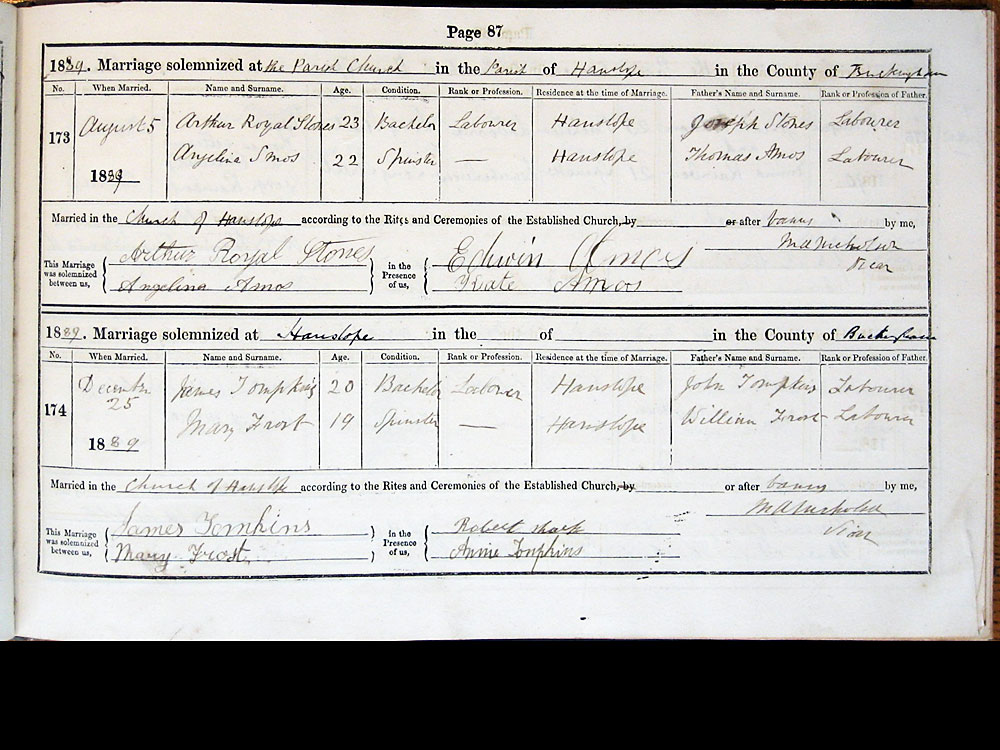 Page 87
1889. Marriage solemnized at the Parish Church in the Parish of Hanslope in the County of Buckingham
No. When Married. Name and Surname. Age. Condition. Rank or Profession. Residence at the time of Marriage. Father's Name and Surname. Rank or Profession of Father.
173 August 5 Arthur Royal Stones 23 Bachelor Labourer Hanslope Joseph Stones Labourer
1889 Angelina Amos 22 Spinster — Hanslope Thomas Amos Labourer
Married in the Church of Hanslope according to the Rites and Ceremonies of the Established Church, by or after banns by me,
This Marriage was solemnized between us, Arthur Royal Stones in the Presence of us, Edwin Amos
Angelina Amos Kate Amos
Vicar
1889. Marriage solemnized at Hanslope in the of in the County of Buckingham
No. When Married. Name and Surname. Age. Condition. Rank or Profession. Residence at the time of Marriage. Father's Name and Surname. Rank or Profession of Father.
174 December 25 James Tompkins 20 Bachelor Labourer Hanslope John Tompkins Labourer
1889 Mary Frost 19 Spinster — Hanslope William Frost Labourer
Married in the Church of Hanslope according to the Rites and Ceremonies of the Established Church, by or after banns by me,
This Marriage was solemnized between us, James Tomkins in the Presence of us, Robert
Mary Frost Annie Tompkins
Vicar